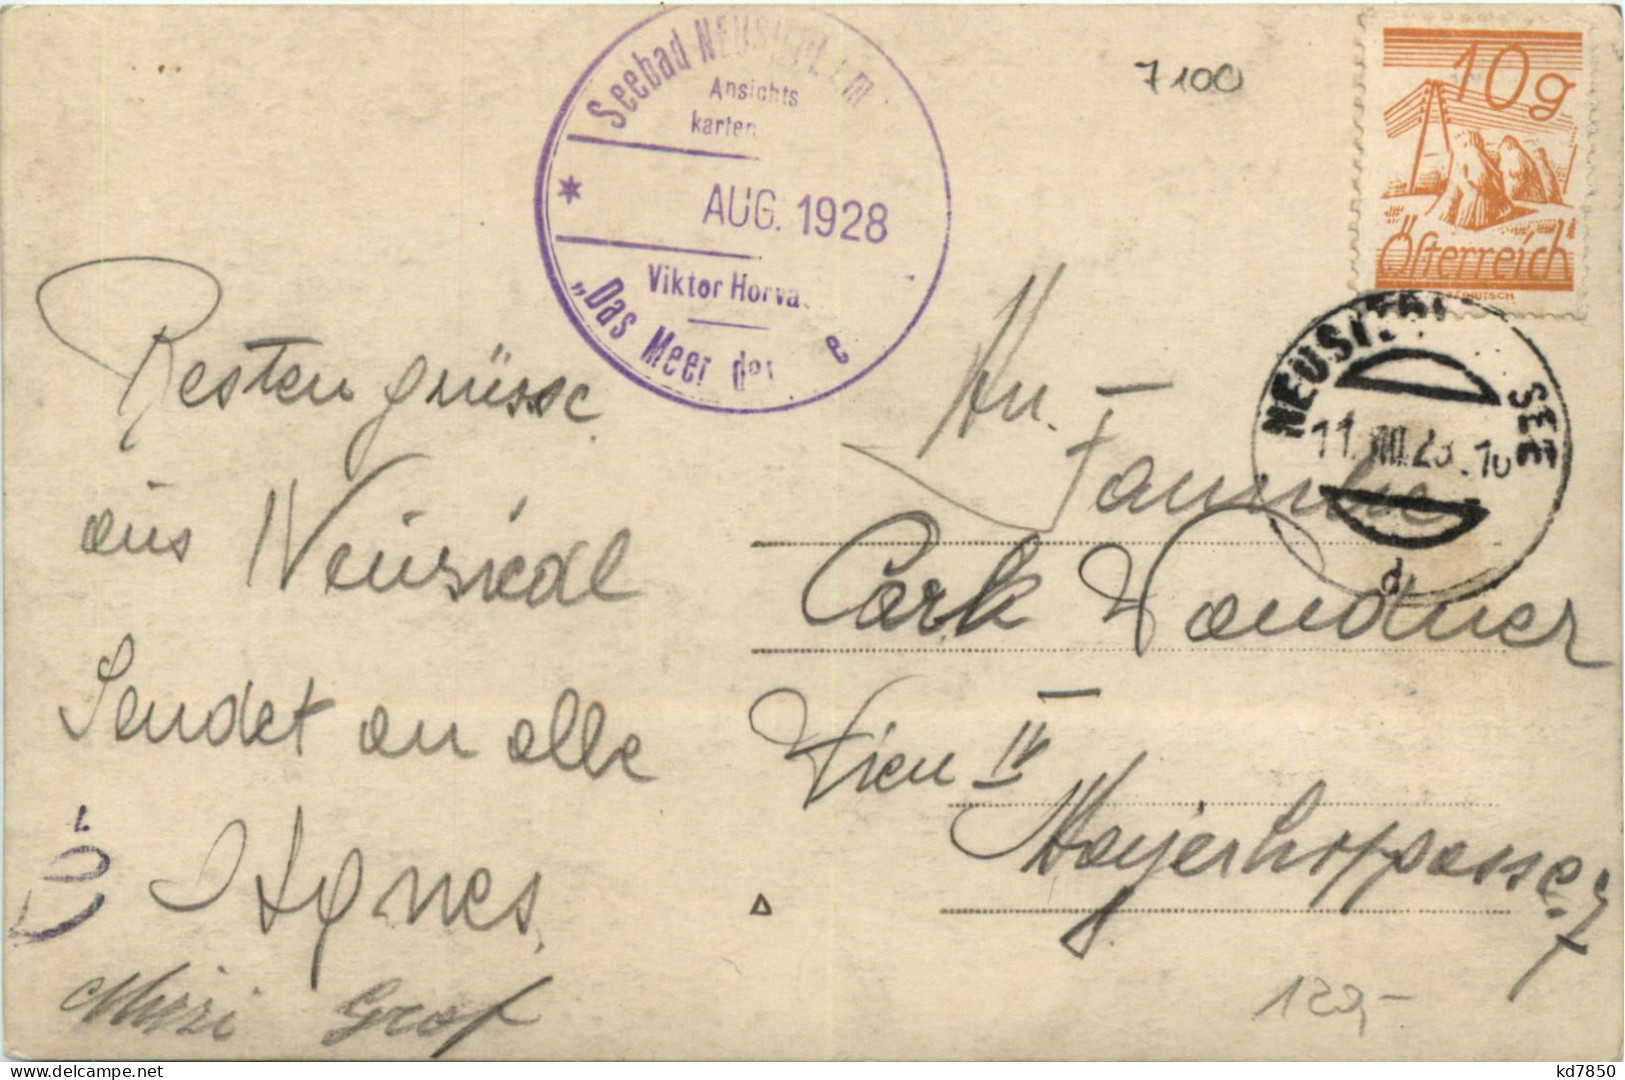 Seebad NEUSIEDL am
Ansichts
karten
AUG. 1928
Viktor Horva
„Das Meer der e
7100
10g
Österreich
NEUSIEDL SEE
11.VIII.28.10
d
Besten grüsse
aus Neusiedl
Sendet an alle
Agnes
Mizzi Graf
An
Familie
Carl
Wien IV
Mayerhofgasse 7
120,-
kd7850